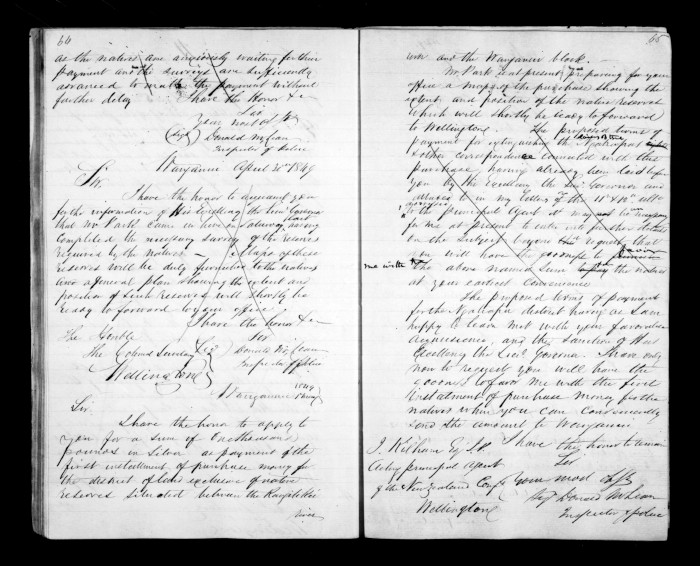 60
as the natives are anxiously waiting for their
payment and the surveys are sufficiently
advanced to make the payment without
further delay I have the Honor &c
Sir
Your most ob
(Sigd) Donald McLean
Inspector of Police
Wanganui April 30th 1849
Sir,
I have the honor to acquaint you
for the information of His Excellency the Lieut Governor
that Mr Park came in here on Saturday having
completed the necessary survey of the reserves
required by the natives — maps of these
reserves will be duly furnished to the natives
and a general plan showing the extent and
position of such reserves will shortly be
ready to forward to your office
I have the honor &c
The Honble Sir
The Colonial Secretary Sigd Donald McLean
Inspector of Police
Wellington
Wanganui 1849
Sir.
I have the honor to apply to
you for a sum of one thousand
pounds in Silver as payment of the
first installment of purchase money for
the district of land exclusive of native
reserves situated between the Rangitikei
river
65
river and the Wanganui block.
Mr Park is at present preparing for your
office a map of the purchase showing the
extent and position of the native reserves
which will shortly be ready to forward
to Wellington. The proposed terms of
payment for extinguishing the
& other correspondence connected with this
purchase having already been laid before
you by His Excellency the Lieut Governor and
alluded to in my letters of the 11th & 12th ulto
to the principal Agent it may not be necessary
for me at present to enter into further details
on the subject beyond requesting that
you will have the goodness to
me with the above named sum the natives
at your earliest convenience
The proposed terms of payment
for the district having as I am
happy to learn met with your favorable
and the sanction of His
Excellency the Lieut Governor. I have only
now to request you will have the
goodness to favor me with the first
installment of purchase money for the
natives when you can conveniently
send the amount to Wanganui.
I have the honor to remain
J. Kelham Esq J.P. Sir
Acting principal Agent
of the New Zealand Compy Your most
Sigd Donald McLean
Wellington Inspector of Police